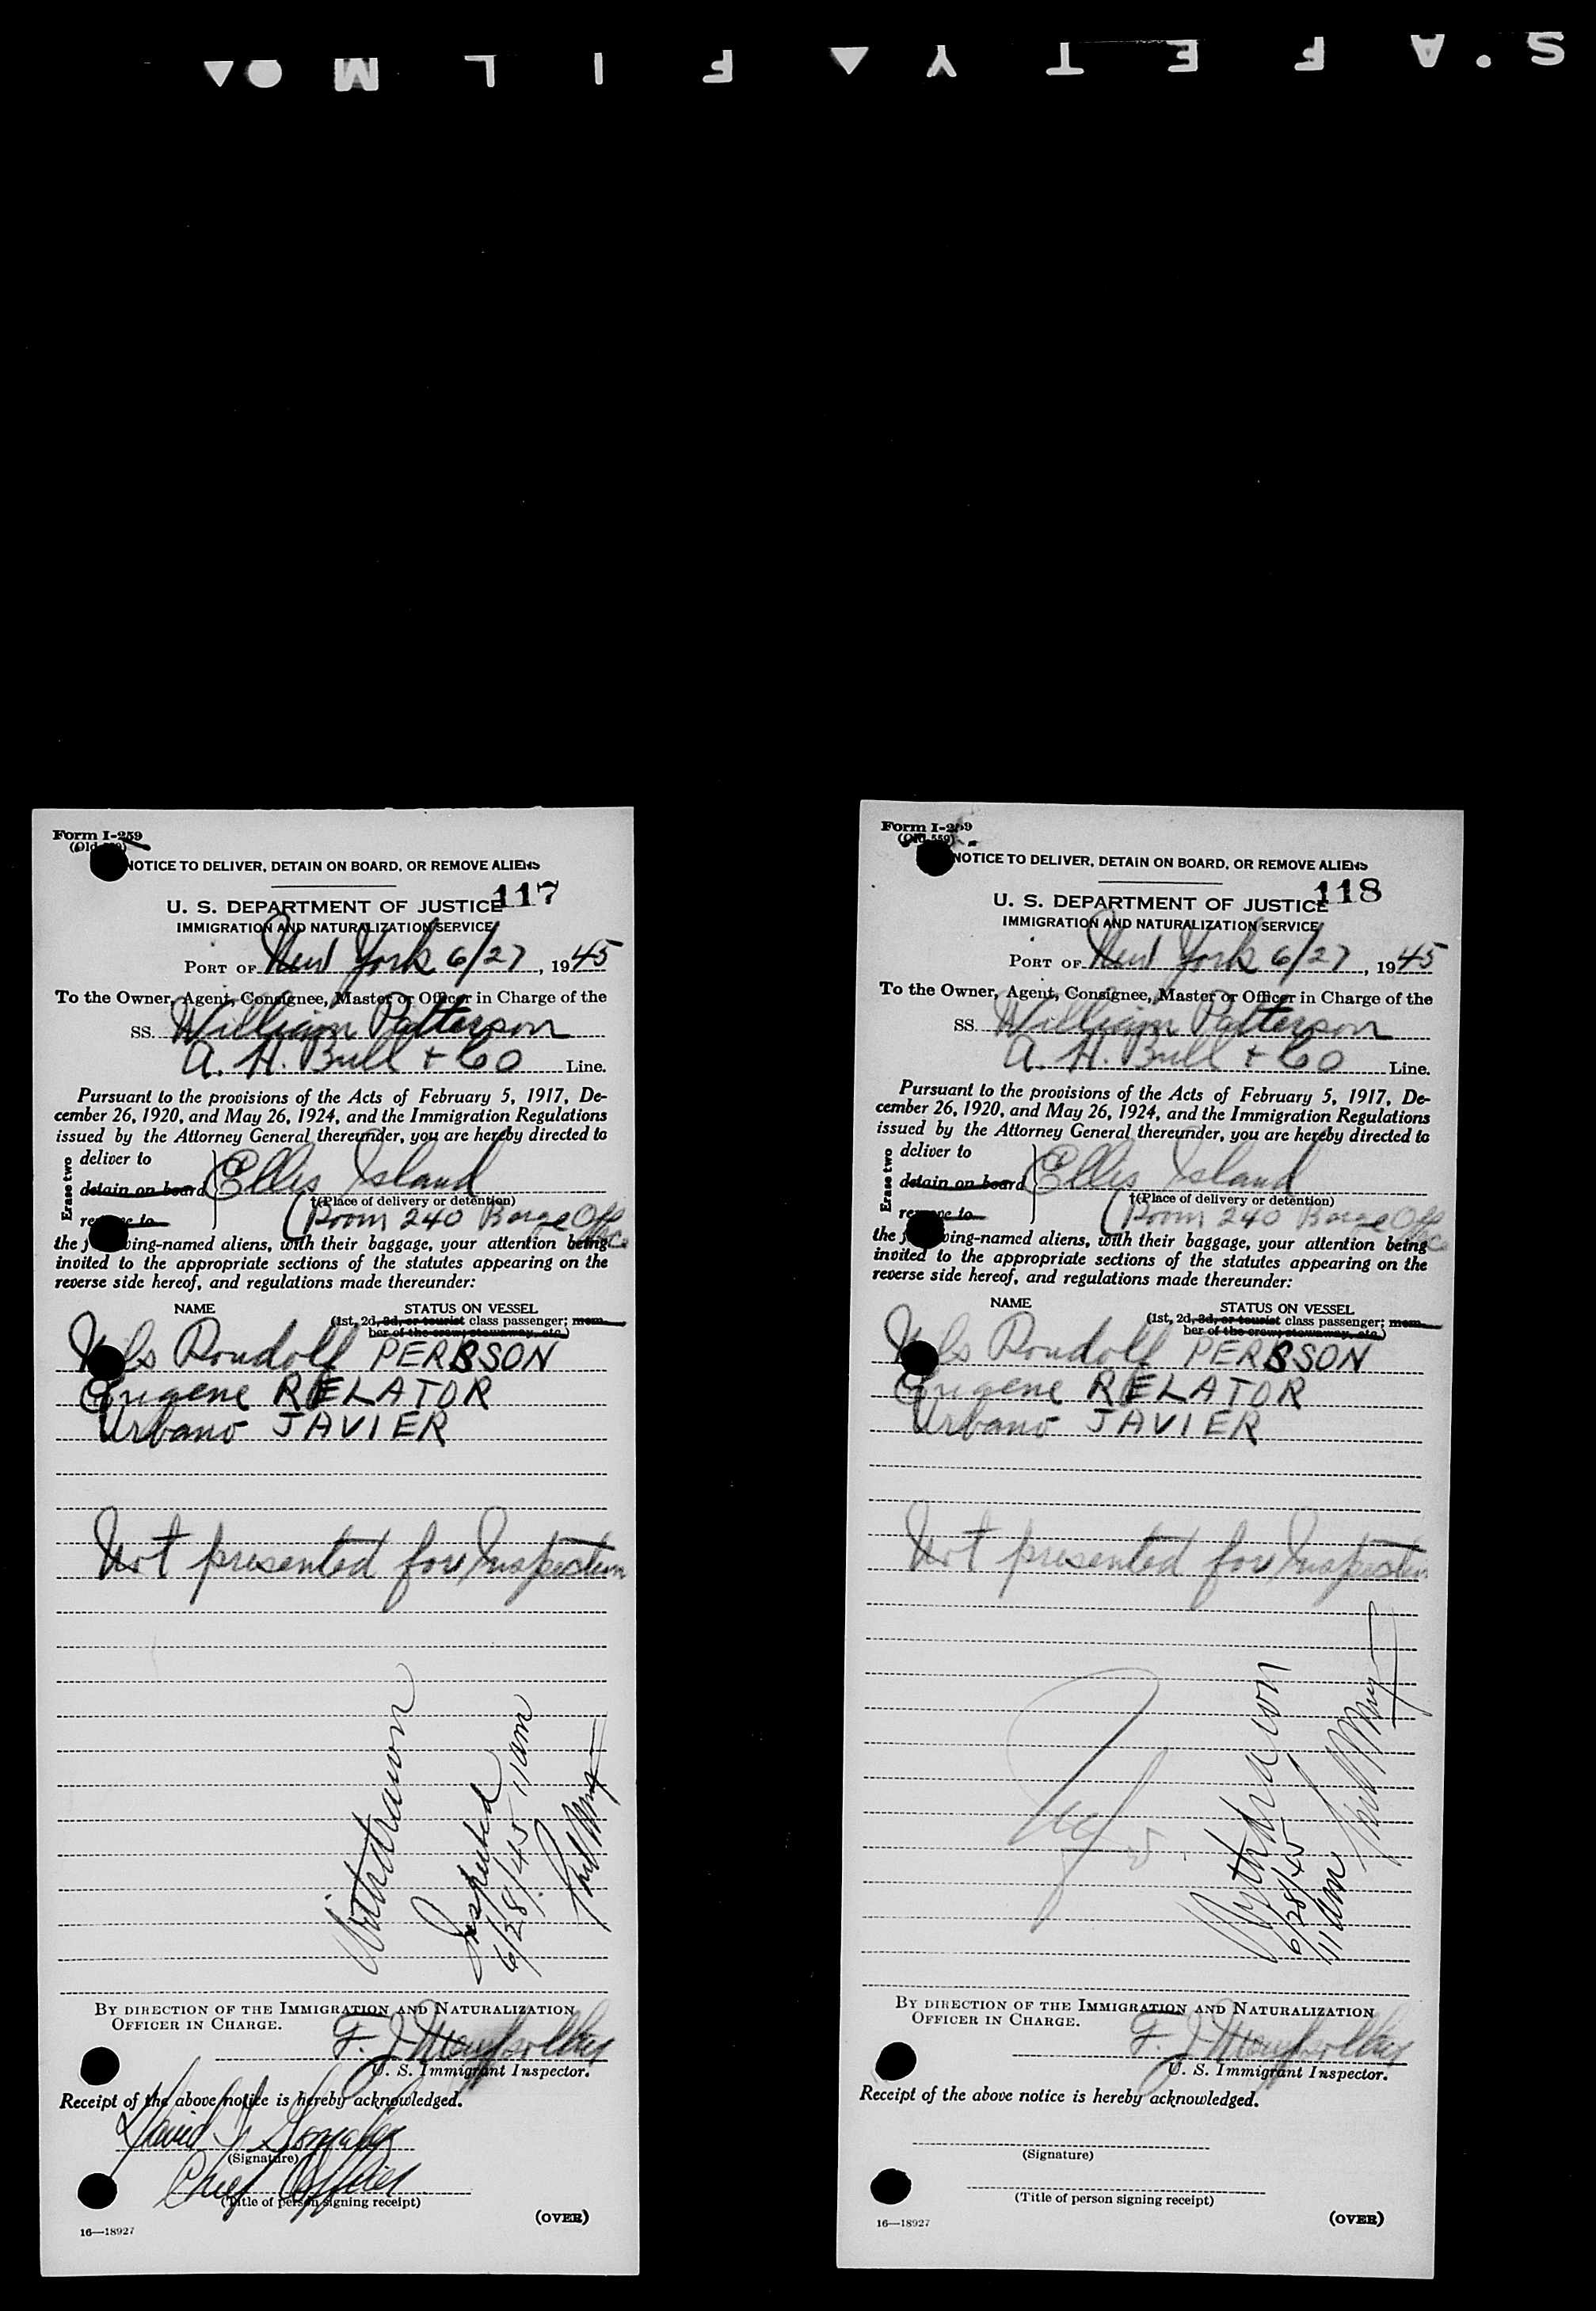 S·AFETY▲FILM●▲
Form I-259
(Old
NOTICE TO DELIVER, DETAIN ON BOARD, OR REMOVE ALIENS
117
U. S. DEPARTMENT OF JUSTICE
IMMIGRATION AND NATURALIZATION SERVICE
PORT OF New York 6/27, 1945
To the Owner, Agent, Consignee, Master or Officer in Charge of the
SS. William Patterson
A. H. Bull + Co Line.
Pursuant to the provisions of the Acts of February 5, 1917, De-
cember 26, 1920, and May 26, 1924, and the Immigration Regulations
issued by the Attorney General thereunder, you are hereby directed to
Erase two
deliver to
detain on board
Ellis Island
†(Place of delivery or detention)
remove to
(Room 240 Barge Office
the following-named aliens, with their baggage, your attention being
invited to the appropriate sections of the statutes appearing on the
reverse side hereof, and regulations made thereunder:
NAME STATUS ON VESSEL
(1st, 2d, 3d, or tourist class passenger; mem-
ber of the crew, stowaway, etc.)
Nils Roudolf PERSSON
Eugene RELATOR
Urbano JAVIER
Not presented for Inspection
Withdrawn
Inspected
6/28/45 11am
BY DIRECTION OF THE IMMIGRATION AND NATURALIZATION
OFFICER IN CHARGE.
F. J.
U. S. Immigrant Inspector.
Receipt of the above notice is hereby acknowledged.
David J. Gonzalez
(Signature)
Chief Officer
(Title of person signing receipt)
(OVER)
16—18927
Form I-259
(Old 559)
NOTICE TO DELIVER, DETAIN ON BOARD, OR REMOVE ALIENS
118
U. S. DEPARTMENT OF JUSTICE
IMMIGRATION AND NATURALIZATION SERVICE
PORT OF New York 6/27, 1945
To the Owner, Agent, Consignee, Master or Officer in Charge of the
SS. William Patterson
A. H. Bull + Co Line.
Pursuant to the provisions of the Acts of February 5, 1917, De-
cember 26, 1920, and May 26, 1924, and the Immigration Regulations
issued by the Attorney General thereunder, you are hereby directed to
Erase two
deliver to
detain on board
Ellis Island
†(Place of delivery or detention)
remove to
(Room 240 Barge Office
the following-named aliens, with their baggage, your attention being
invited to the appropriate sections of the statutes appearing on the
reverse side hereof, and regulations made thereunder:
NAME STATUS ON VESSEL
(1st, 2d, 3d, or tourist class passenger; mem-
ber of the crew, stowaway, etc.)
Nils Roudolf PERSSON
Eugene RELATOR
Urbano JAVIER
Not presented for Inspection
Withdrawn
6/28/45
11 am
BY DIRECTION OF THE IMMIGRATION AND NATURALIZATION
OFFICER IN CHARGE.
F. J.
U. S. Immigrant Inspector.
Receipt of the above notice is hereby acknowledged.
(Signature)
(Title of person signing receipt)
(OVER)
16—18927